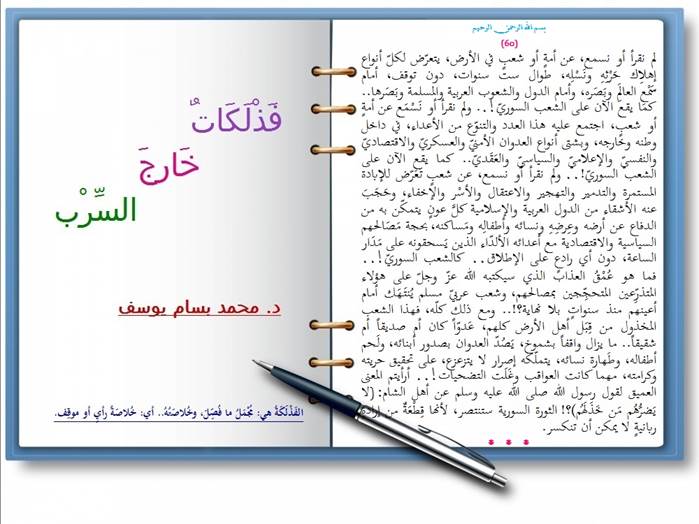 بسم الله الرحمن الرحيم
(60)
لم نقرأ أو نسمع، عن أمةٍ أو شعبٍ في الأرض، يتعرّض لكلّ أنواع
إهلاك حَرْثِهِ ونَسْلِه، طوال ستّ سنوات، دون توقف، أمام
سَمْعِ العالَمِ وبَصَره، وأمام الدول والشعوب العربية والمسلمة وبَصَرها..
كما يقع الآن على الشعب السوريّ!.. ولم نقرأ أو نَسْمَع عن أمةٍ
أو شعبٍ، اجتمع عليه هذا العدد والتنوّع من الأعداء، في داخل
وطنه وخارجه، وبشتى أنواع العدوان الأمنيّ والعسكريّ والاقتصاديّ
والنفسيّ والإعلاميّ والسياسيّ والعَقَديّ.. كما يقع الآن على
الشعب السوريّ!.. ولم نقرأ أو نسمع، عن شعبٍ تَعَرَّضَ للإبادة
المستمرة والتدمير والتهجير والاعتقال والأسْر والإخفاء، وحَجَبَ
عنه الأشقاء من الدول العربية والإسلامية كلَّ عونٍ يتمكّن به من
الدفاع عن أرضه وعِرضِهِ ونسائه وأطفالِه ومَساكنه، بحجة مَصَالحهم
السياسية والاقتصادية مع أعدائه الألدّاء الذين يَسحقونه على مَدَار
الساعة، دون أي رادعٍ على الإطلاق.. كالشعب السوريّ!..
فما هو عُمْقُ العذاب الذي سيكتبه الله عزّ وجلّ على هؤلاء
المتذرّعين المتحجّجين بمصالحهم، وشعب عربيّ مسلم يُنتَهَك أمام
أعينهم منذ سنواتٍ بلا نهاية؟!.. ومع ذلك كلّه، فهذا الشعب
المخذول من قِبَلِ أهل الأرض كلهم، عَدوّاً كان أم صديقاً أم
شقيقاً.. ما يزال واقفاً بشموخ، يَصُدّ العدوان بصدور أبنائه، ولَحم
أطفاله، وطَهارة نسائه، يتملّكه إصرار لا يتزعزع، على تحقيق حريته
وكرامته، مهما كانت العواقب وغَلَت التضحيات!.. أرأيتم المعنى
العميق لقول رسول الله صلى الله عليه وسلم عن أهل الشام: (لا
يَضرُّهُم مَن خَذَلَهُم)؟! الثورة السورية ستنتصر، لأنها قِطْعَةٌ من إرادة
ربانيةٍ لا يمكن أن تنكسر.
فَذْلَكَاتٌ
خَارِجَ
السِّرْبِ
د. محمد بسام يوسف
الفَذْلَكَةُ هي: مُجْمَلُ ما فُصِّلَ، وخُلاصَتُهُ.. أي: خُلاصَةُ رأيٍ أو موقِف.